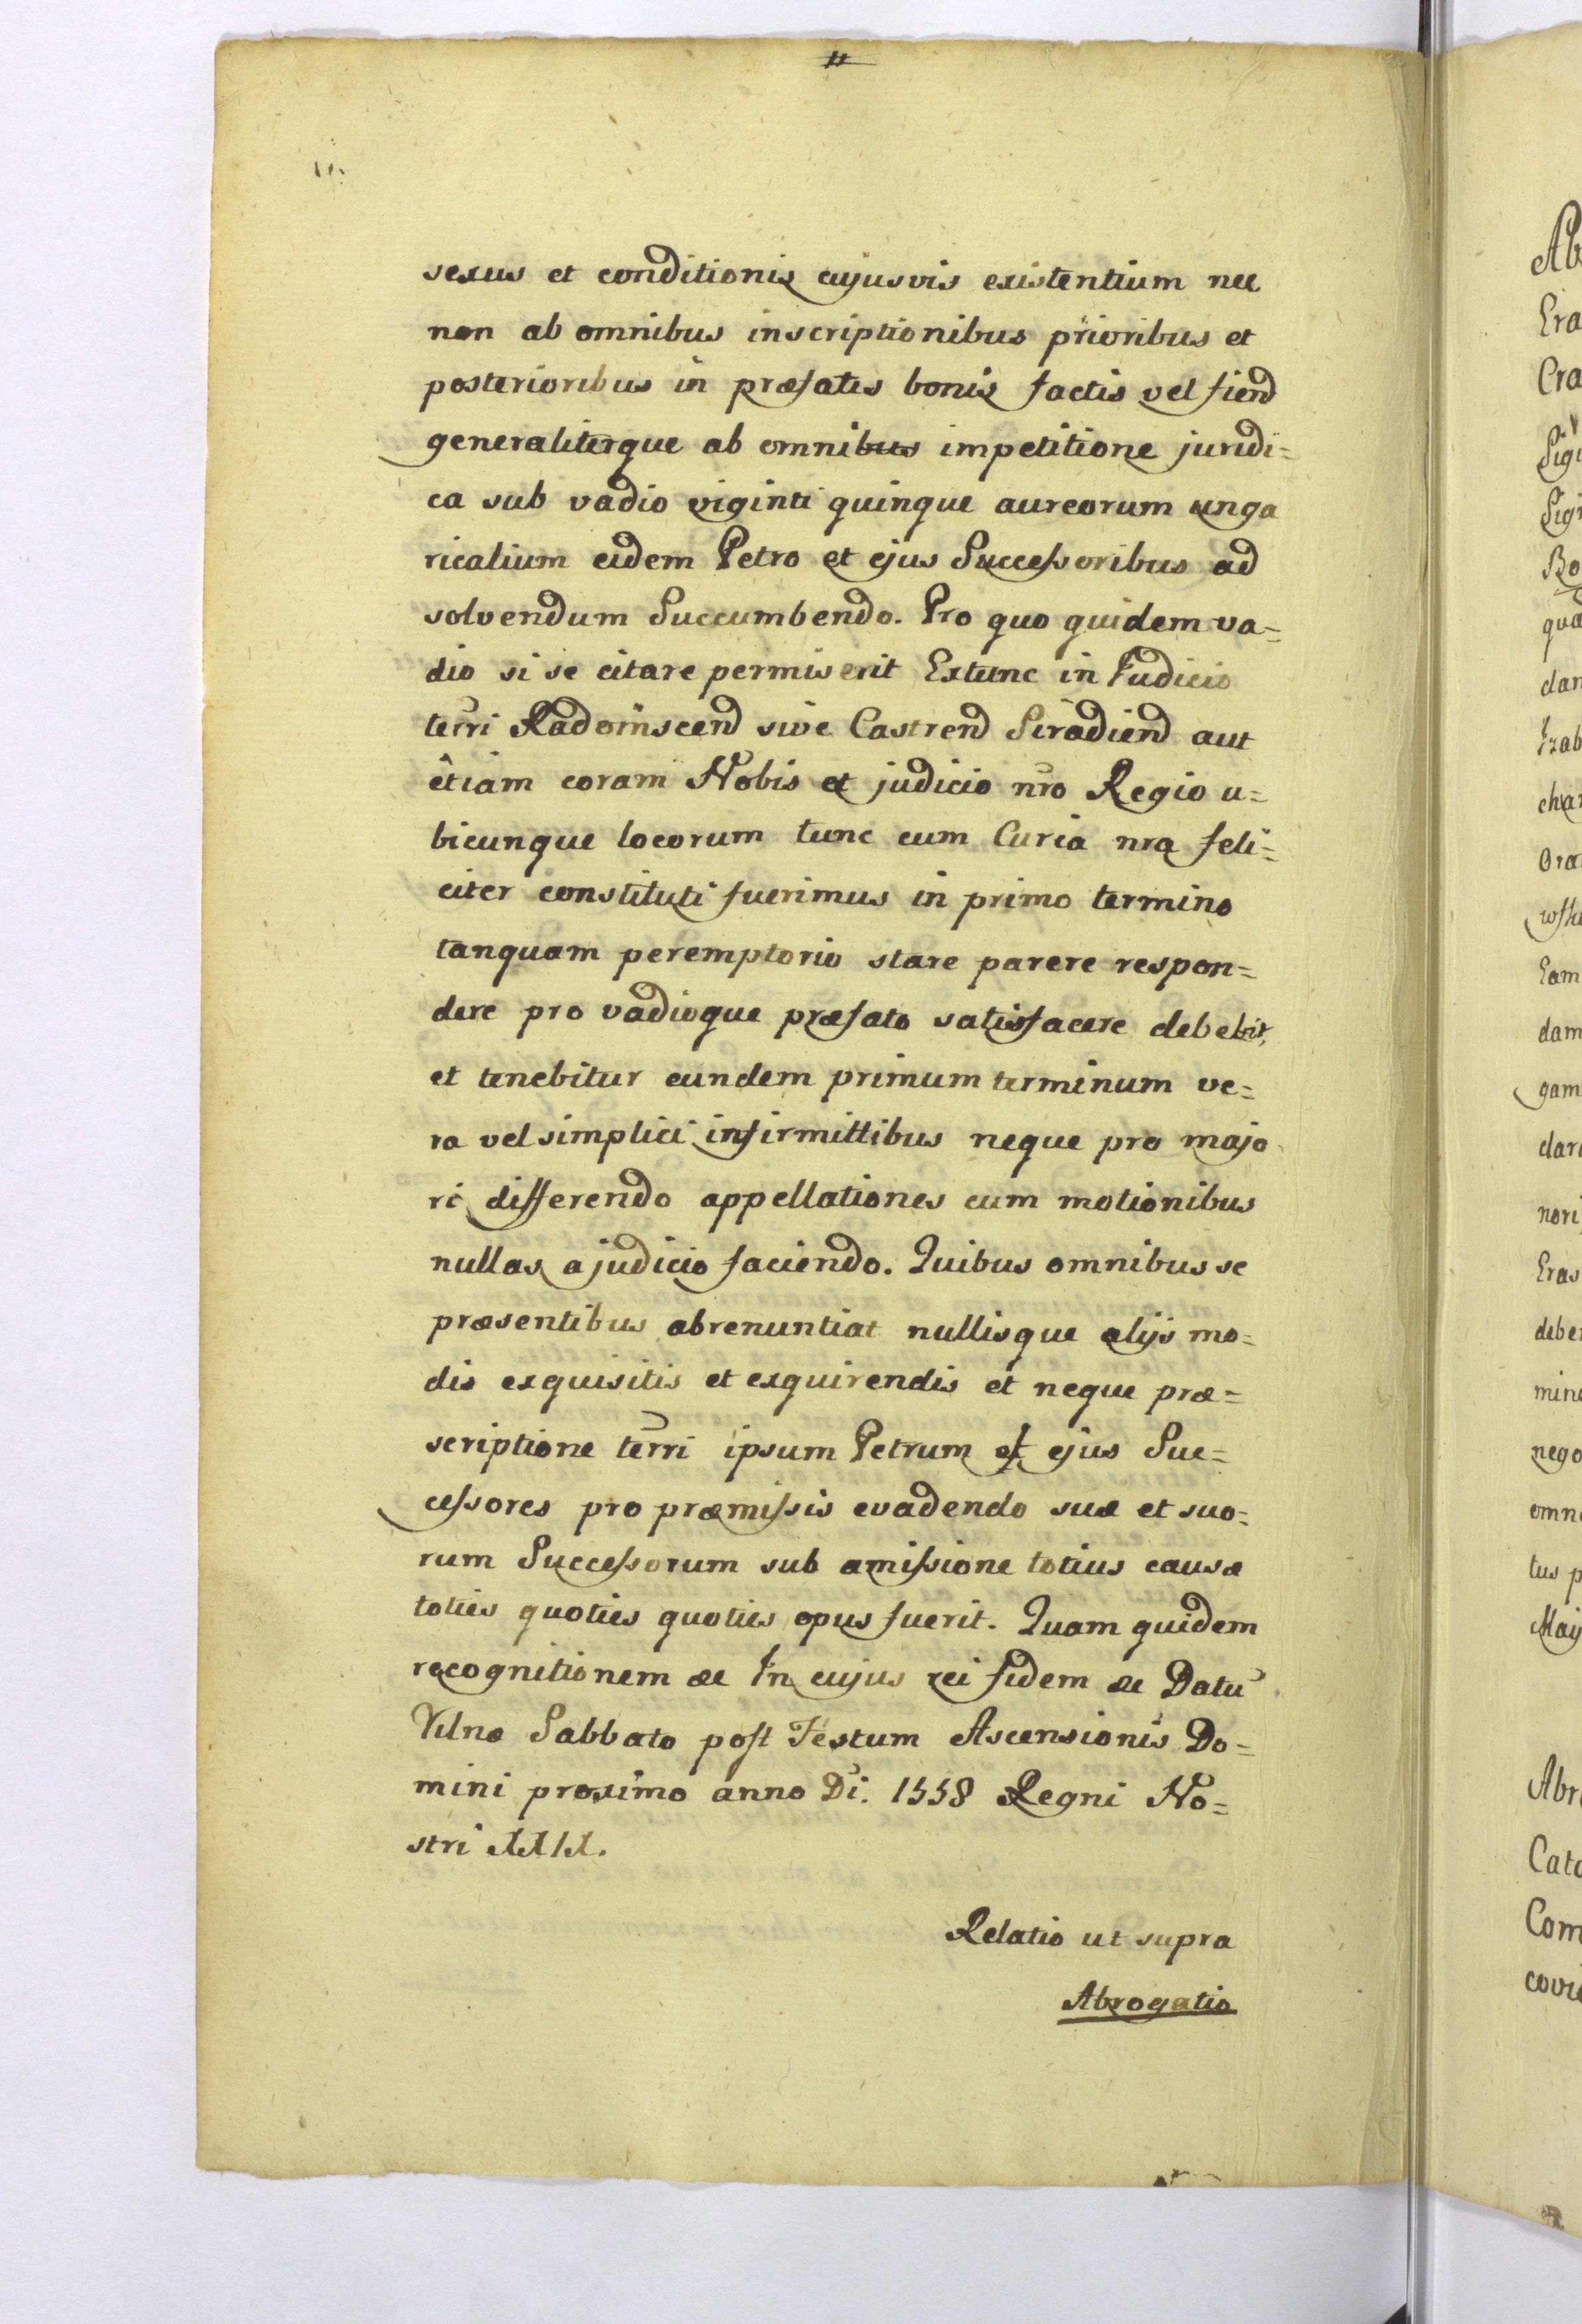 sexus et conditionis cujusvis existentium nec
non ab omnibus inscriptionibus prioribus et
posterioribus in præfatis bonis factis vel fiend
generaliterque ab omnibus impetitione juridi=
ca sub vadio viginti quinque aureorum unga
ricalium eidem Petro et ejus Successoribus ad
solvendum Succumbendo. Pro quo quidem va=
dio si se citare permiserit Extunc in Judicio
terri Radomscend sive Castrend Siradiend aut
etiam coram Nobis et judicio nro Regio u=
bicunque locorum tunc cum Curia nra feli=
citer constituti fuerimus in primo termino
tanquam peremptorio stare parere respon=
dere pro vadioque præfato satisfacere debebit,
et tenebitur eundem primum terminum ve=
ra vel simplici infirmittibus neque pro majo
ri differendo appellationes cum motionibus
nullas a judicio faciendo. Quibus omnibus se
præsentibus abrenuntiat nullisque alijs mo=
dis exquisitis et exquirendis et neque præ=
scriptione terri ipsum Petrum et ejus Suc=
cessores pro præmissis evadendo suæ et suo=
rum Successorum sub amissione totius causæ
toties quoties quoties opus fuerit. Quam quidem
recognitionem &c In cujus rei fidem &c Datū
Vilnæ Sabbato post Festum Ascensionis Do=
mini proximo anno Di. 1558 Regni No=
stri
Relatio ut supra
Abrogatio
Ab
Era
Cra
Sigi
Sigi
Bo
qua
dan
Izab
char
Ora
Eam
dam
gam
clar
nori
Eras
deber
mine
nego
omn
tus p
Maij
Abr
Cato
Com